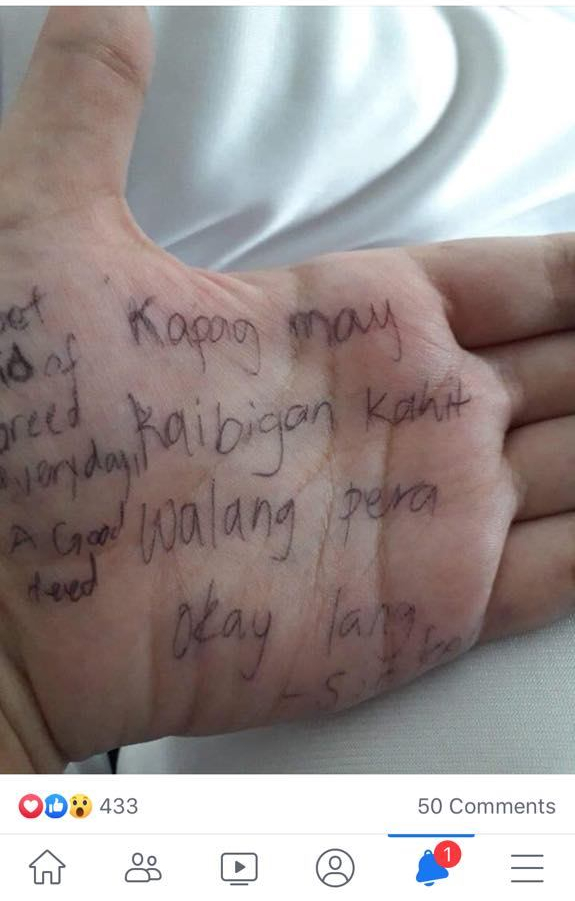 of
everyday,
A Good
deed
Kapag may
Kaibigan Kahit
Walang pera
okay lang
433
50 Comments
1